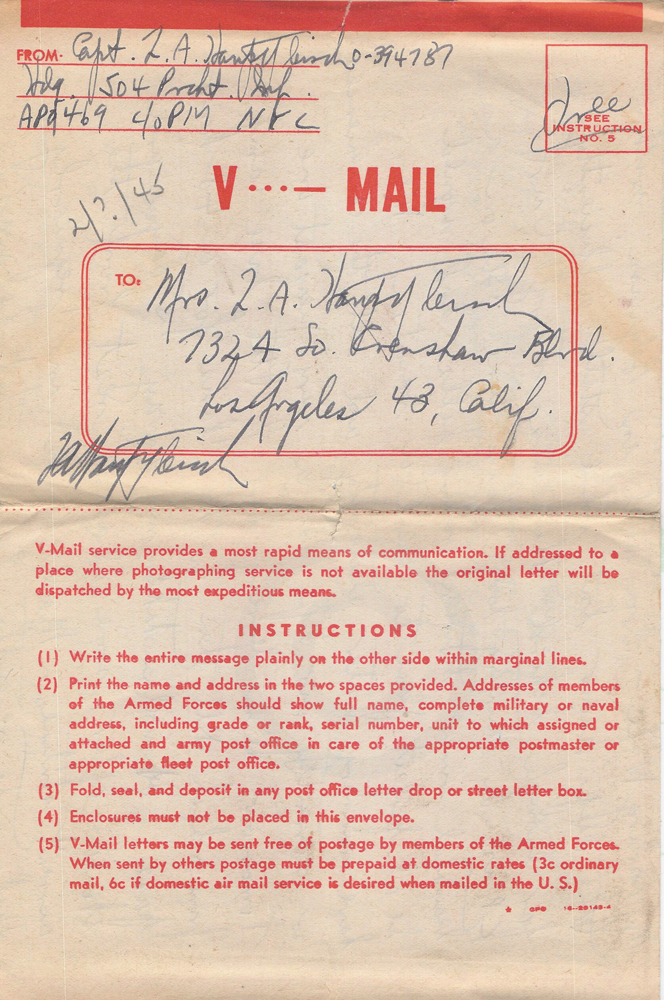 FROM- Capt. L. A. Hauptfleisch O-394787
Hdq. 504 Prcht. Inf.
APO 469 c/o PM NYC
Free
SEE
INSTRUCTION
NO. 5
V •••— MAIL
2/?/45
TO: Mrs. L. A. Hauptfleisch
7324 So. Crenshaw Blvd.
Los Angeles 43, Calif.
LA Hauptfleisch
V-Mail service provides a most rapid means of communication. If addressed to a
place where photographing service is not available the original letter will be
dispatched by the most expeditious means.
INSTRUCTIONS
(1) Write the entire message plainly on the other side within marginal lines.
(2) Print the name and address in the two spaces provided. Addresses of members
of the Armed Forces should show full name, complete military or naval
address, including grade or rank, serial number, unit to which assigned or
attached and army post office in care of the appropriate postmaster or
appropriate fleet post office.
(3) Fold, seal, and deposit in any post office letter drop or street letter box.
(4) Enclosures must not be placed in this envelope.
(5) V-Mail letters may be sent free of postage by members of the Armed Forces.
When sent by others postage must be prepaid at domestic rates (3c ordinary
mail, 6c if domestic air mail service is desired when mailed in the U. S.)
GPO 16—28143-4